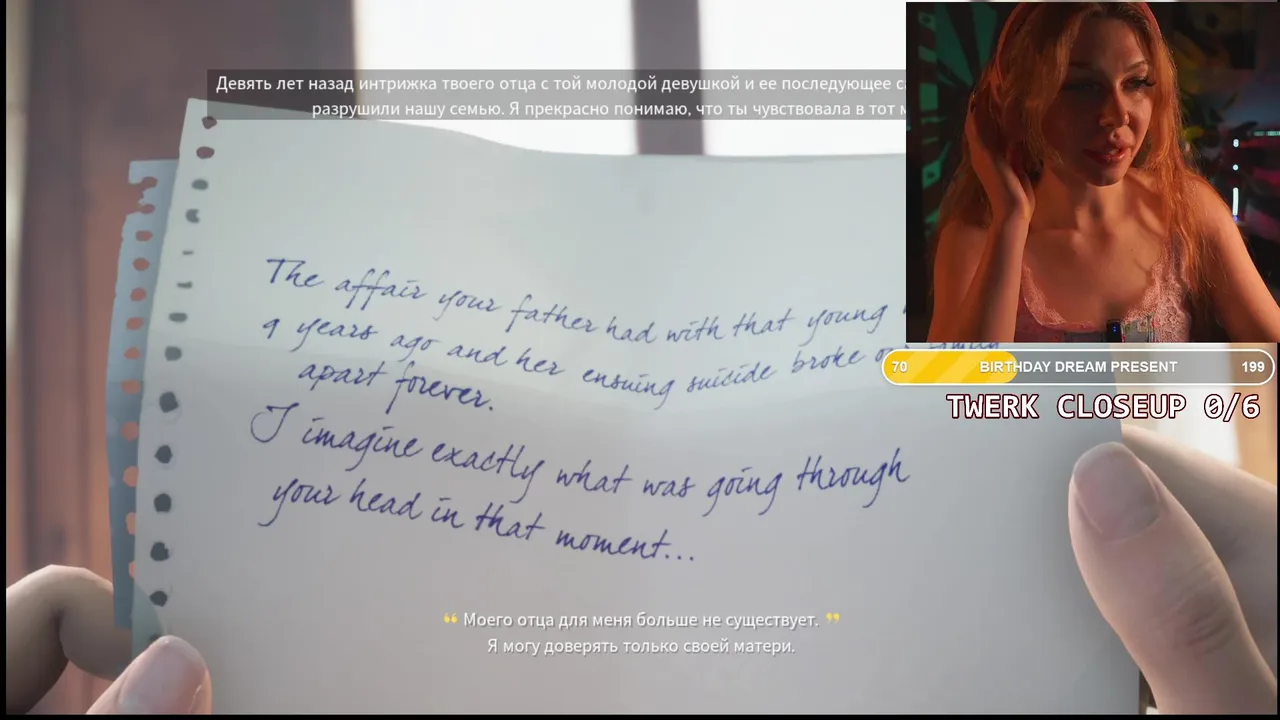 Девять лет назад интрижка твоего отца с той молодой девушкой и ее последующее
разрушили нашу семью. Я прекрасно понимаю, что ты чувствовала в тот
The affair your father had with that young
9 years ago and her ensuing suicide broke our family
apart forever.
I imagine exactly what was going through
your head in that moment...
“ Моего отца для меня больше не существует. ”
Я могу доверять только своей матери.
70 BIRTHDAY DREAM PRESENT 199
TWERK CLOSEUP 0/6